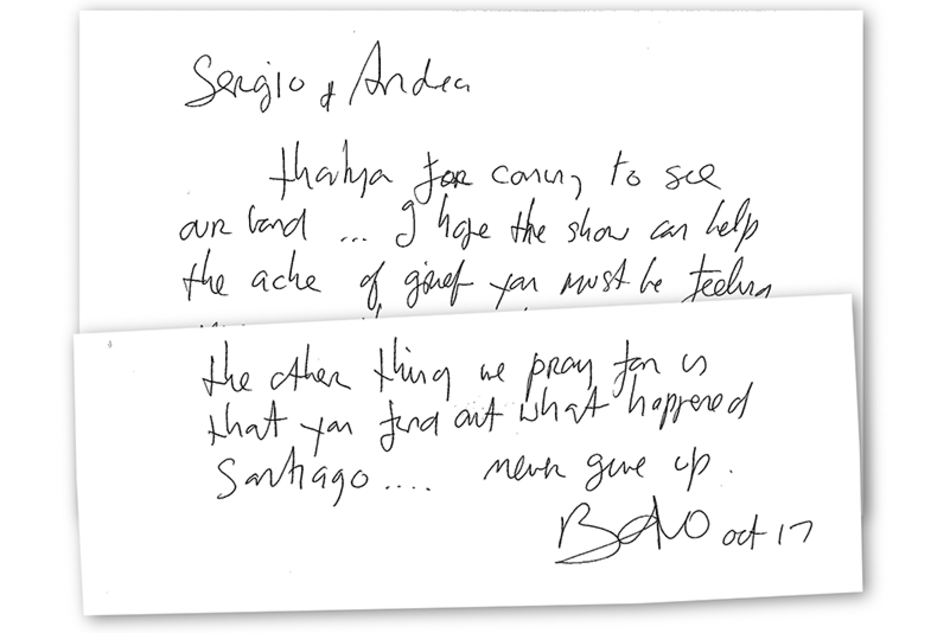 Sergio & Andrea
thankya for coming to see
our band ... I hope the show can help
the ache of grief you must be feeling
the other thing we pray for is
that you find out what happened
Santiago.... never give up.
BONO oct 17